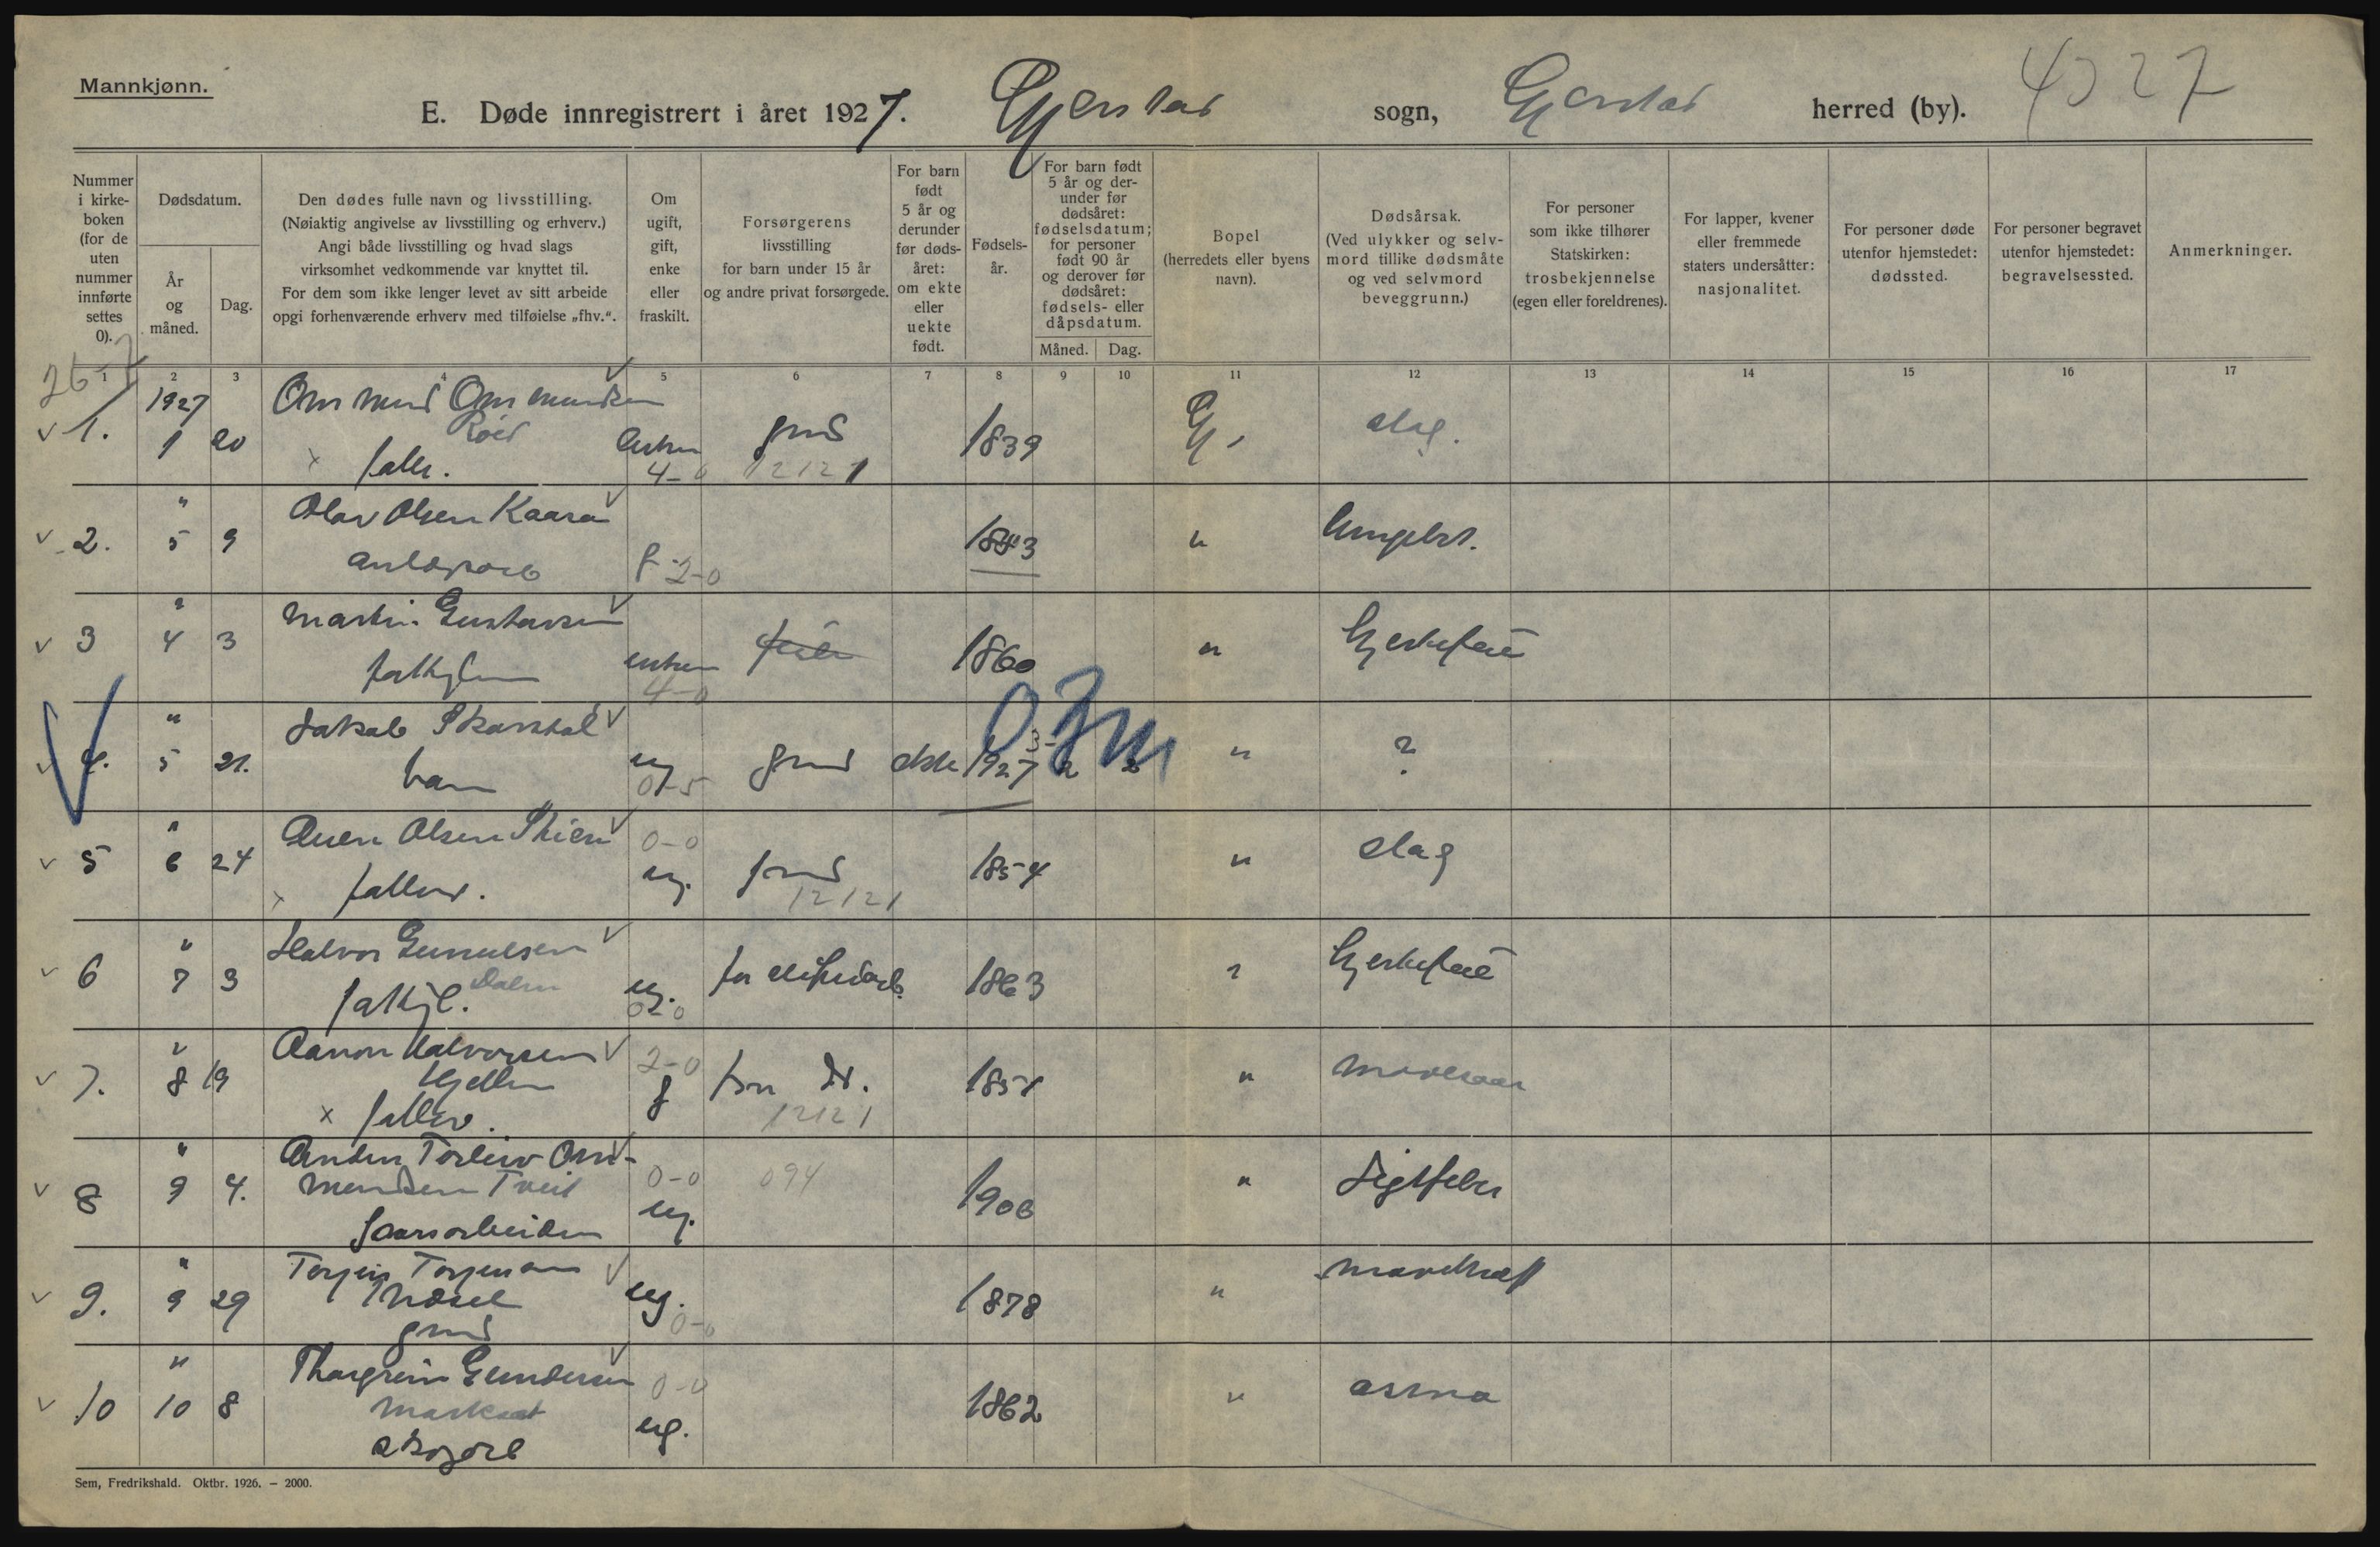 Mannkjønn.
E. Døde innregistrert i året 1927. Gjerstad sogn, Gjerstad herred (by).
Nummer i kirke-boken (for de uten nummer innførte settes 0).
Dødsdatum.
År og måned.
Dag.
Den dødes fulle navn og livsstilling.
(Nøiaktig angivelse av livsstilling og erhverv.)
Angi både livsstilling og hvad slags
virksomhet vedkommende var knyttet til.
For dem som ikke lenger levet av sitt arbeide
opgi forhenværende erhverv med tilføielse „fhv.“.
Om ugift, gift, enke eller fraskilt.
Forsørgerens
livsstilling
for barn under 15 år
og andre privat forsørgede.
For barn født 5 år og derunder før døds-året: om ekte eller uekte født.
Fødsels-år.
For barn født 5 år og der-under før dødsåret: fødselsdatum; for personer født 90 år og derover før dødsåret: fødsels- eller dåpsdatum.
Måned.
Dag.
Bopel
(herredets eller byens
navn).
Dødsårsak.
(Ved ulykker og selv-
mord tillike dødsmåte
og ved selvmord
beveggrunn.)
For personer
som ikke tilhører
Statskirken:
trosbekjennelse
(egen eller foreldrenes).
For lapper, kvener
eller fremmede
staters undersåtter:
nasjonalitet.
For personer døde
utenfor hjemstedet:
dødssted.
For personer begravet
utenfor hjemstedet:
begravelsessted.
Anmerkninger.
1 2 3 4 5 6 7 8 9 10 11 12 13 14 15 16 17
1927
1. 1 20 Ommund Ommundsen
Røed
4-0 grd 12121 1839 Gj. slag.
2. " 5 9 Olav Olsen Kaasa
g 2-0 1843 "
3 " 4 3 Martin Gustavsen
enkem 4-0 1860 " Hjertefeil
4. " 5 21. Jakob Skarstøl
barn ug 0-5 grd ekte 1927 2 " ?
5 " 6 24 Olsen
0-0 ug. grd 12121 1854 " slag
6 " 7 3 Halvor Gunnulsen
Dalen
ug. 0-0 1863 " Hjertefeil
7. " 8 19 Aanon Halvorsen
2-0 g 12121 1851 " mavesaar
8 " 9 4. Anders Torleiv Om-
mundsen Tveit
0-0 ug. 094 1906 " Gigtfeber
9. " 9 29 Torjus
grd ug. 0-0 1878 " mavekræft
10 " 10 8 Thorgrim Gundersen
skogarb 0-0 ug. 1862 " astma
Sem, Fredrikshald. Oktbr. 1926. – 2000.